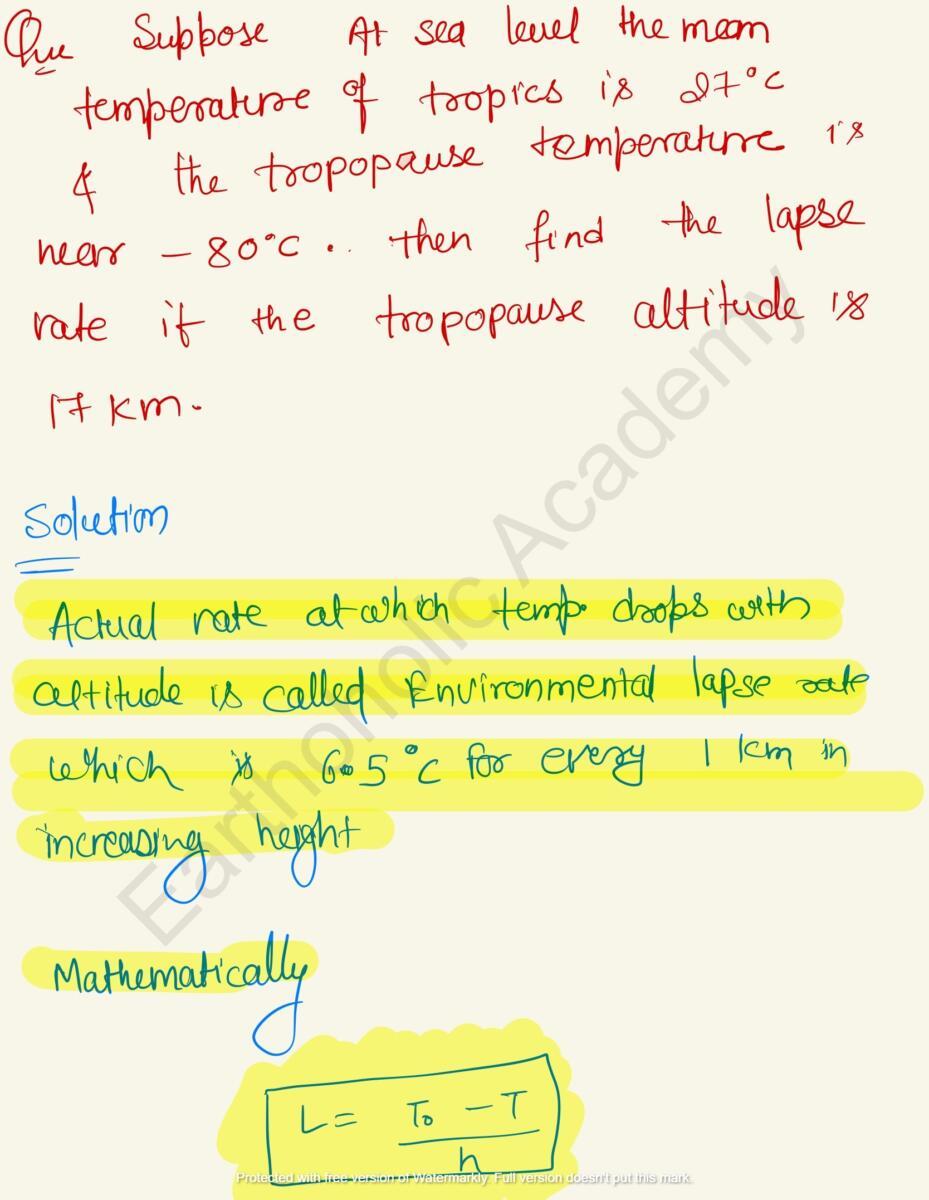 Que Suppose At sea level the mean
temperature of tropics is 27°C
& the tropopause temperature is
near - 80°C .. then find the lapse
rate if the tropopause altitude is
17 km.
Solution
Actual rate at which temp. drops with
altitude is called Environmental lapse rate
which is 6.5°C for every 1 km in
increasing height
Mathematically
L = T₀ - T / h
Earthoholic Academy
Protected with free version of Watermarkly. Full version doesn't put this mark.